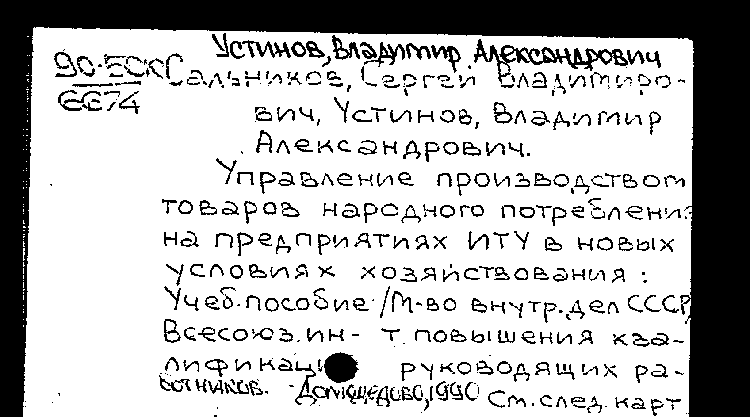 Устинов, Владимир Александрович
90-5СК
6674
Сальников, Сергей Владимиро-
вич, Устинов, Владимир
Александрович.
Управление производством
товаров народного потреблени
на предприятиях ИТУ в новых
условиях хозяйствования :
Учеб. пособие / М-во внутр. дел СССР,
Всесоюз. ин-т повышения ква-
лификац руководящих ра-
ботников. - Домодедово, 1990
См. след. карт